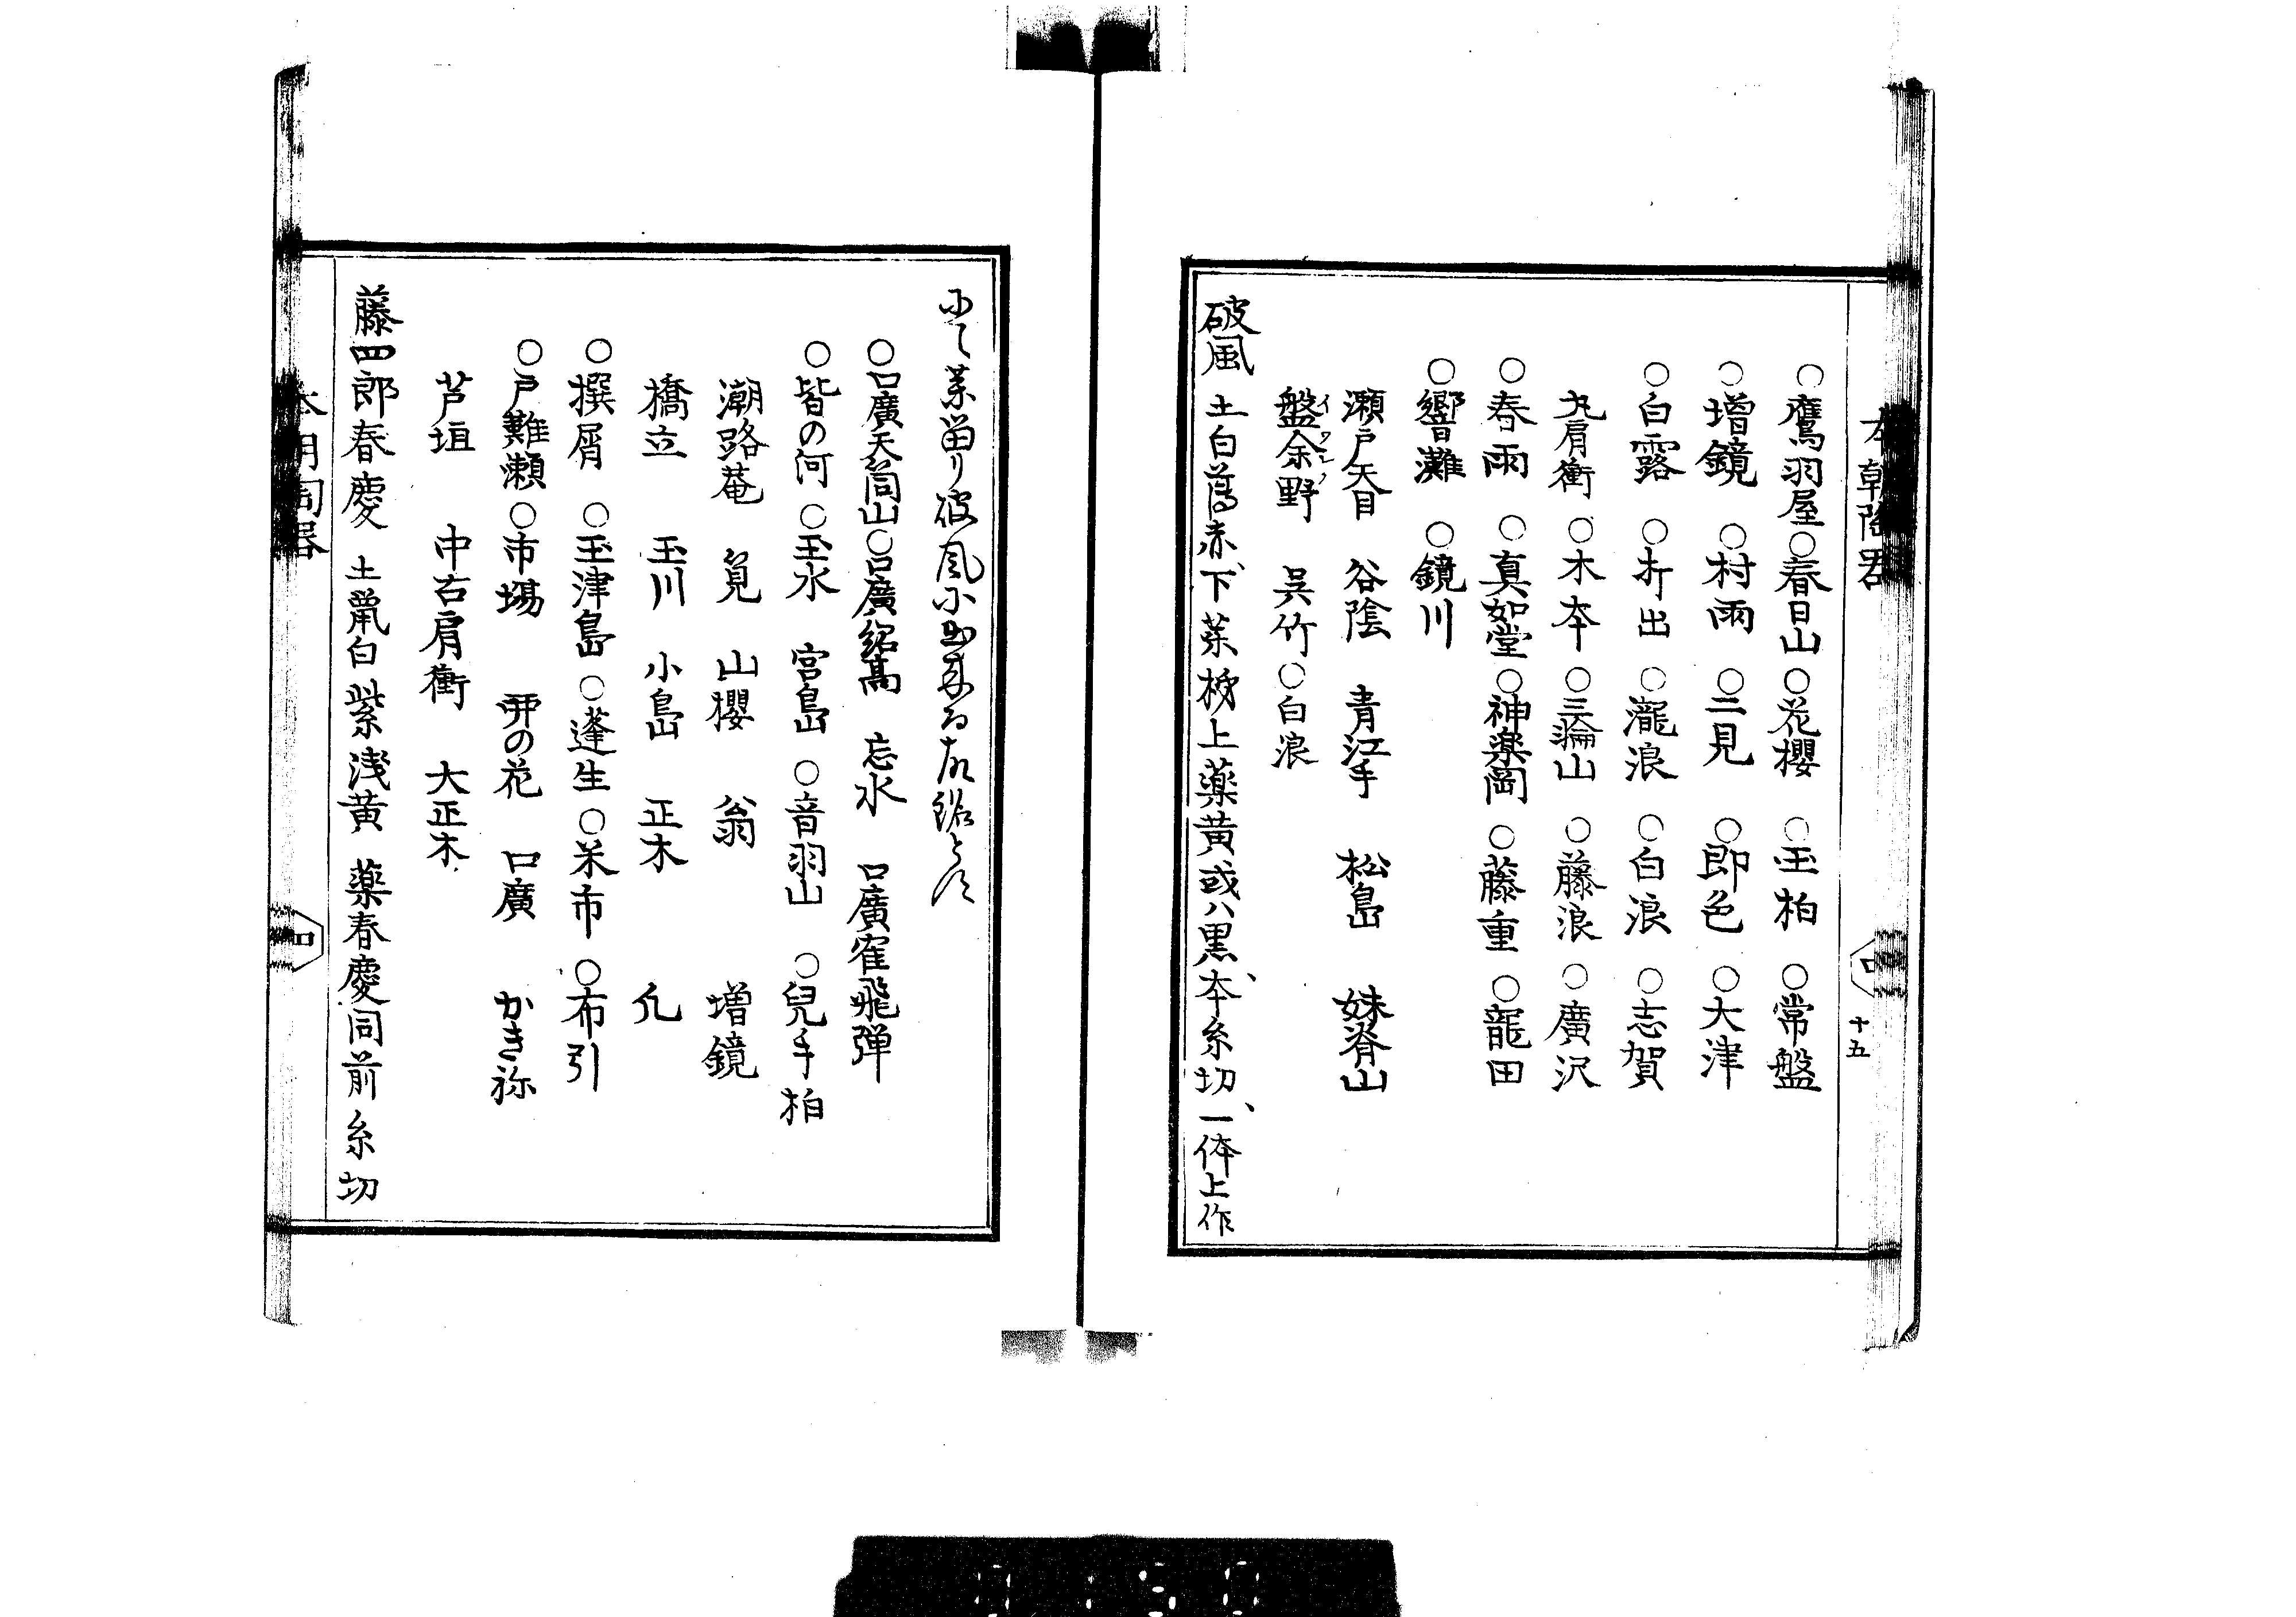 十五
○鷹羽屋○春日山○花櫻 ○玉柏 ○常盤
○増鏡 ○村雨 ○二見 ○即色 ○大津
○白露 ○折出 ○瀧浪 ○白浪 ○志賀
丸肩衝 ○木本 ○三輪山 ○藤浪 ○廣沢
○春雨 ○真如堂○神楽岡 ○藤重 ○龍田
○響灘 ○鏡川
瀬戸天目 谷陰 青江手 松島 妹脊山
盤余野 呉竹○白浪
破風 土白薄赤、下薬柹上薬黄或ハ黒、本糸切、一体上作
にて薬留り破風に出来る故銘とス
○口廣天筒山○口廣紹高 忘水 口廣窄飛弾
○皆の何 ○玉水 宮島 ○音羽山 ○兒手柏
潮路菴 筧 山櫻 翁 増鏡
橋立 玉川 小島 正木 凢
○撰屑 ○玉津島 ○蓬生 ○米市 ○布引
○戸難瀬○市場 の花 口廣 かき祢
芦垣 中古肩衝 大正木
藤四郎春慶 土鼠白紫浅黄 薬春慶同前糸切